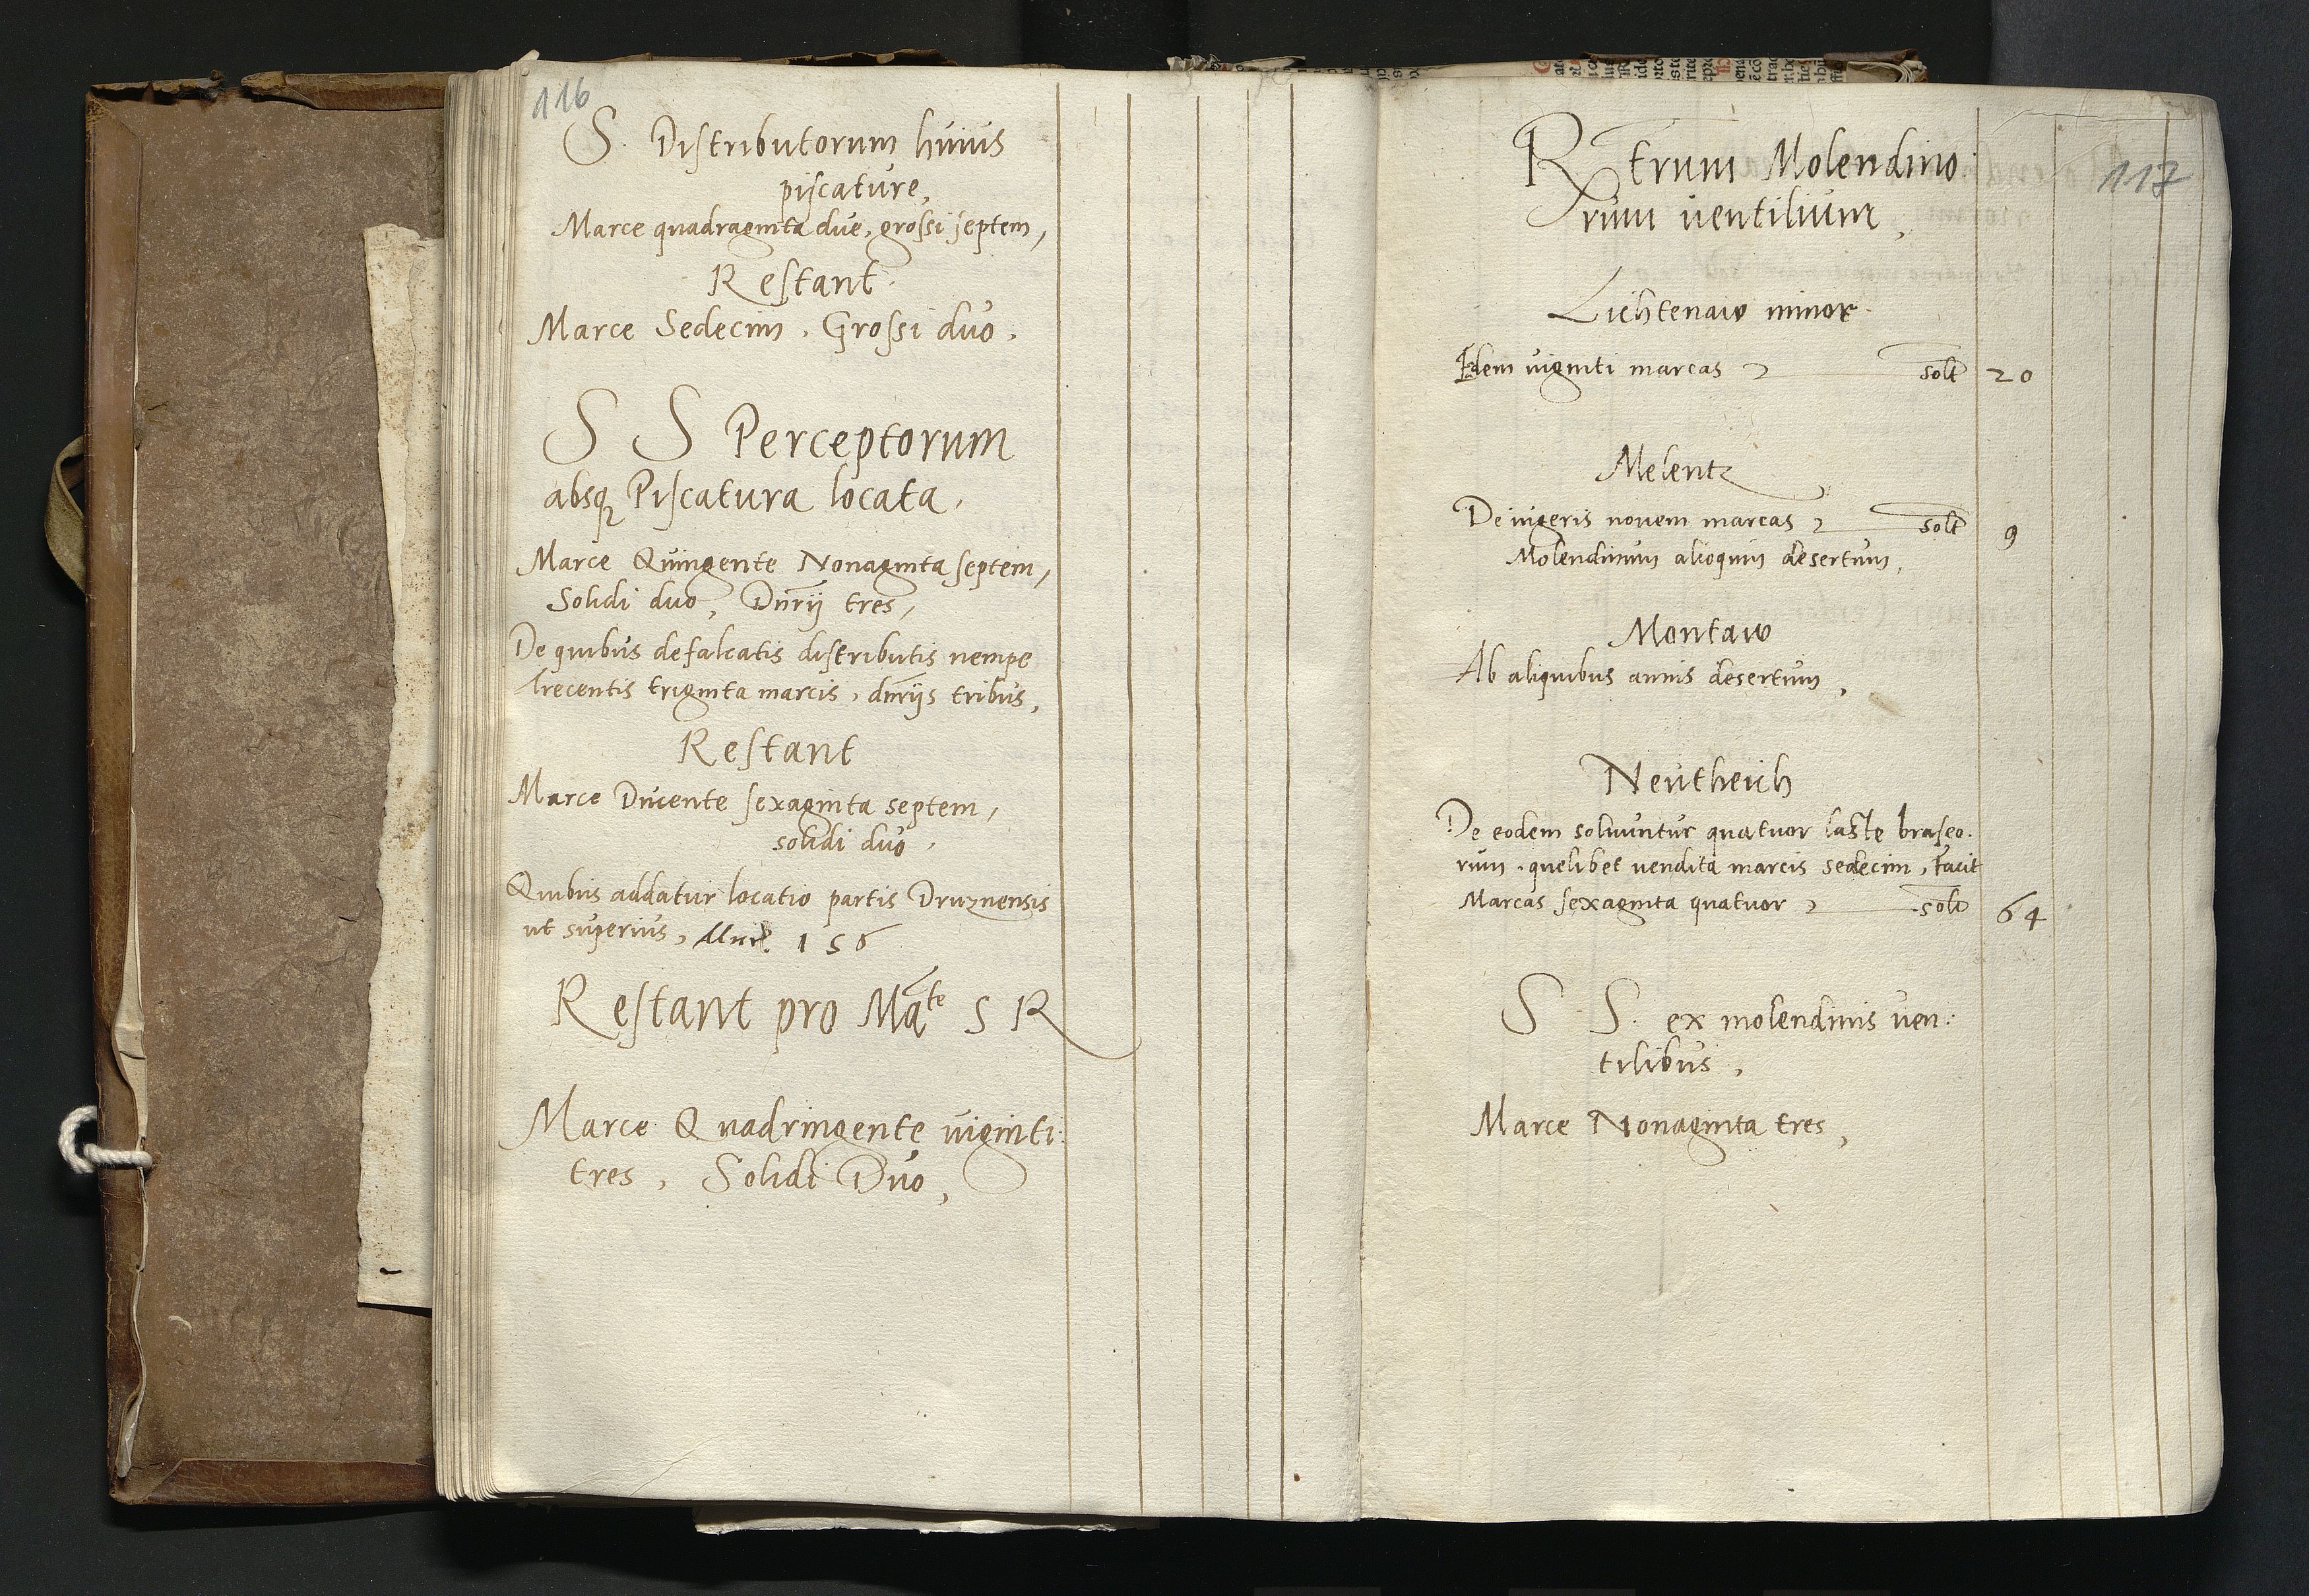 116
S. Distributorum huius
piscature,
Marce quadraginta due, grossi septem,
Restant.
Marce Sedecim, Grossi duo.
S S Perceptorum
absq Piscatura locata,
Marce Quingente Nonaginta septem,
Solidi duo, Dnrij tres,
De quibus defalcatis distributis nempe
trecentis triginta marcis, dnrijs tribus,
Restant
Marce Ducente sexaginta septem,
solidi duo,
Quibus addatur locatio partis Druznensis
ut superius, Mrc. 156
Restant pro Mate S R
Marce Quadringente viginti:
tres, Solidi Duo,
117
Rtrum Molendino
rum ventilium,
Lichtenaw minor
Idem viginti marcas solt 20
Melentz
De iugeris novem marcas solt 9
Molendinum alioquin desertum,
Montaw
Ab aliquibus annis desertum,
Neutheich
De eodem solvuntur quatuor laste braseo.
rum, quelibet vendita marcis sedecim, facit
Marcas sexaginta quatuor solt 64
S S. ex molendinis ven:
tilibus,
Marce Nonaginta tres,